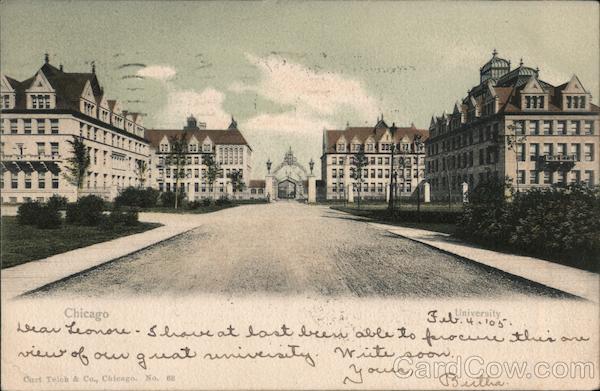 Chicago
University
Feb. 4. '05.
Dear Leonore - I have at last been able to procure this one
view of our great university. Write soon.
Yours
Bertha.
Curt Teich & Co., Chicago. No. 68
CardCow.com